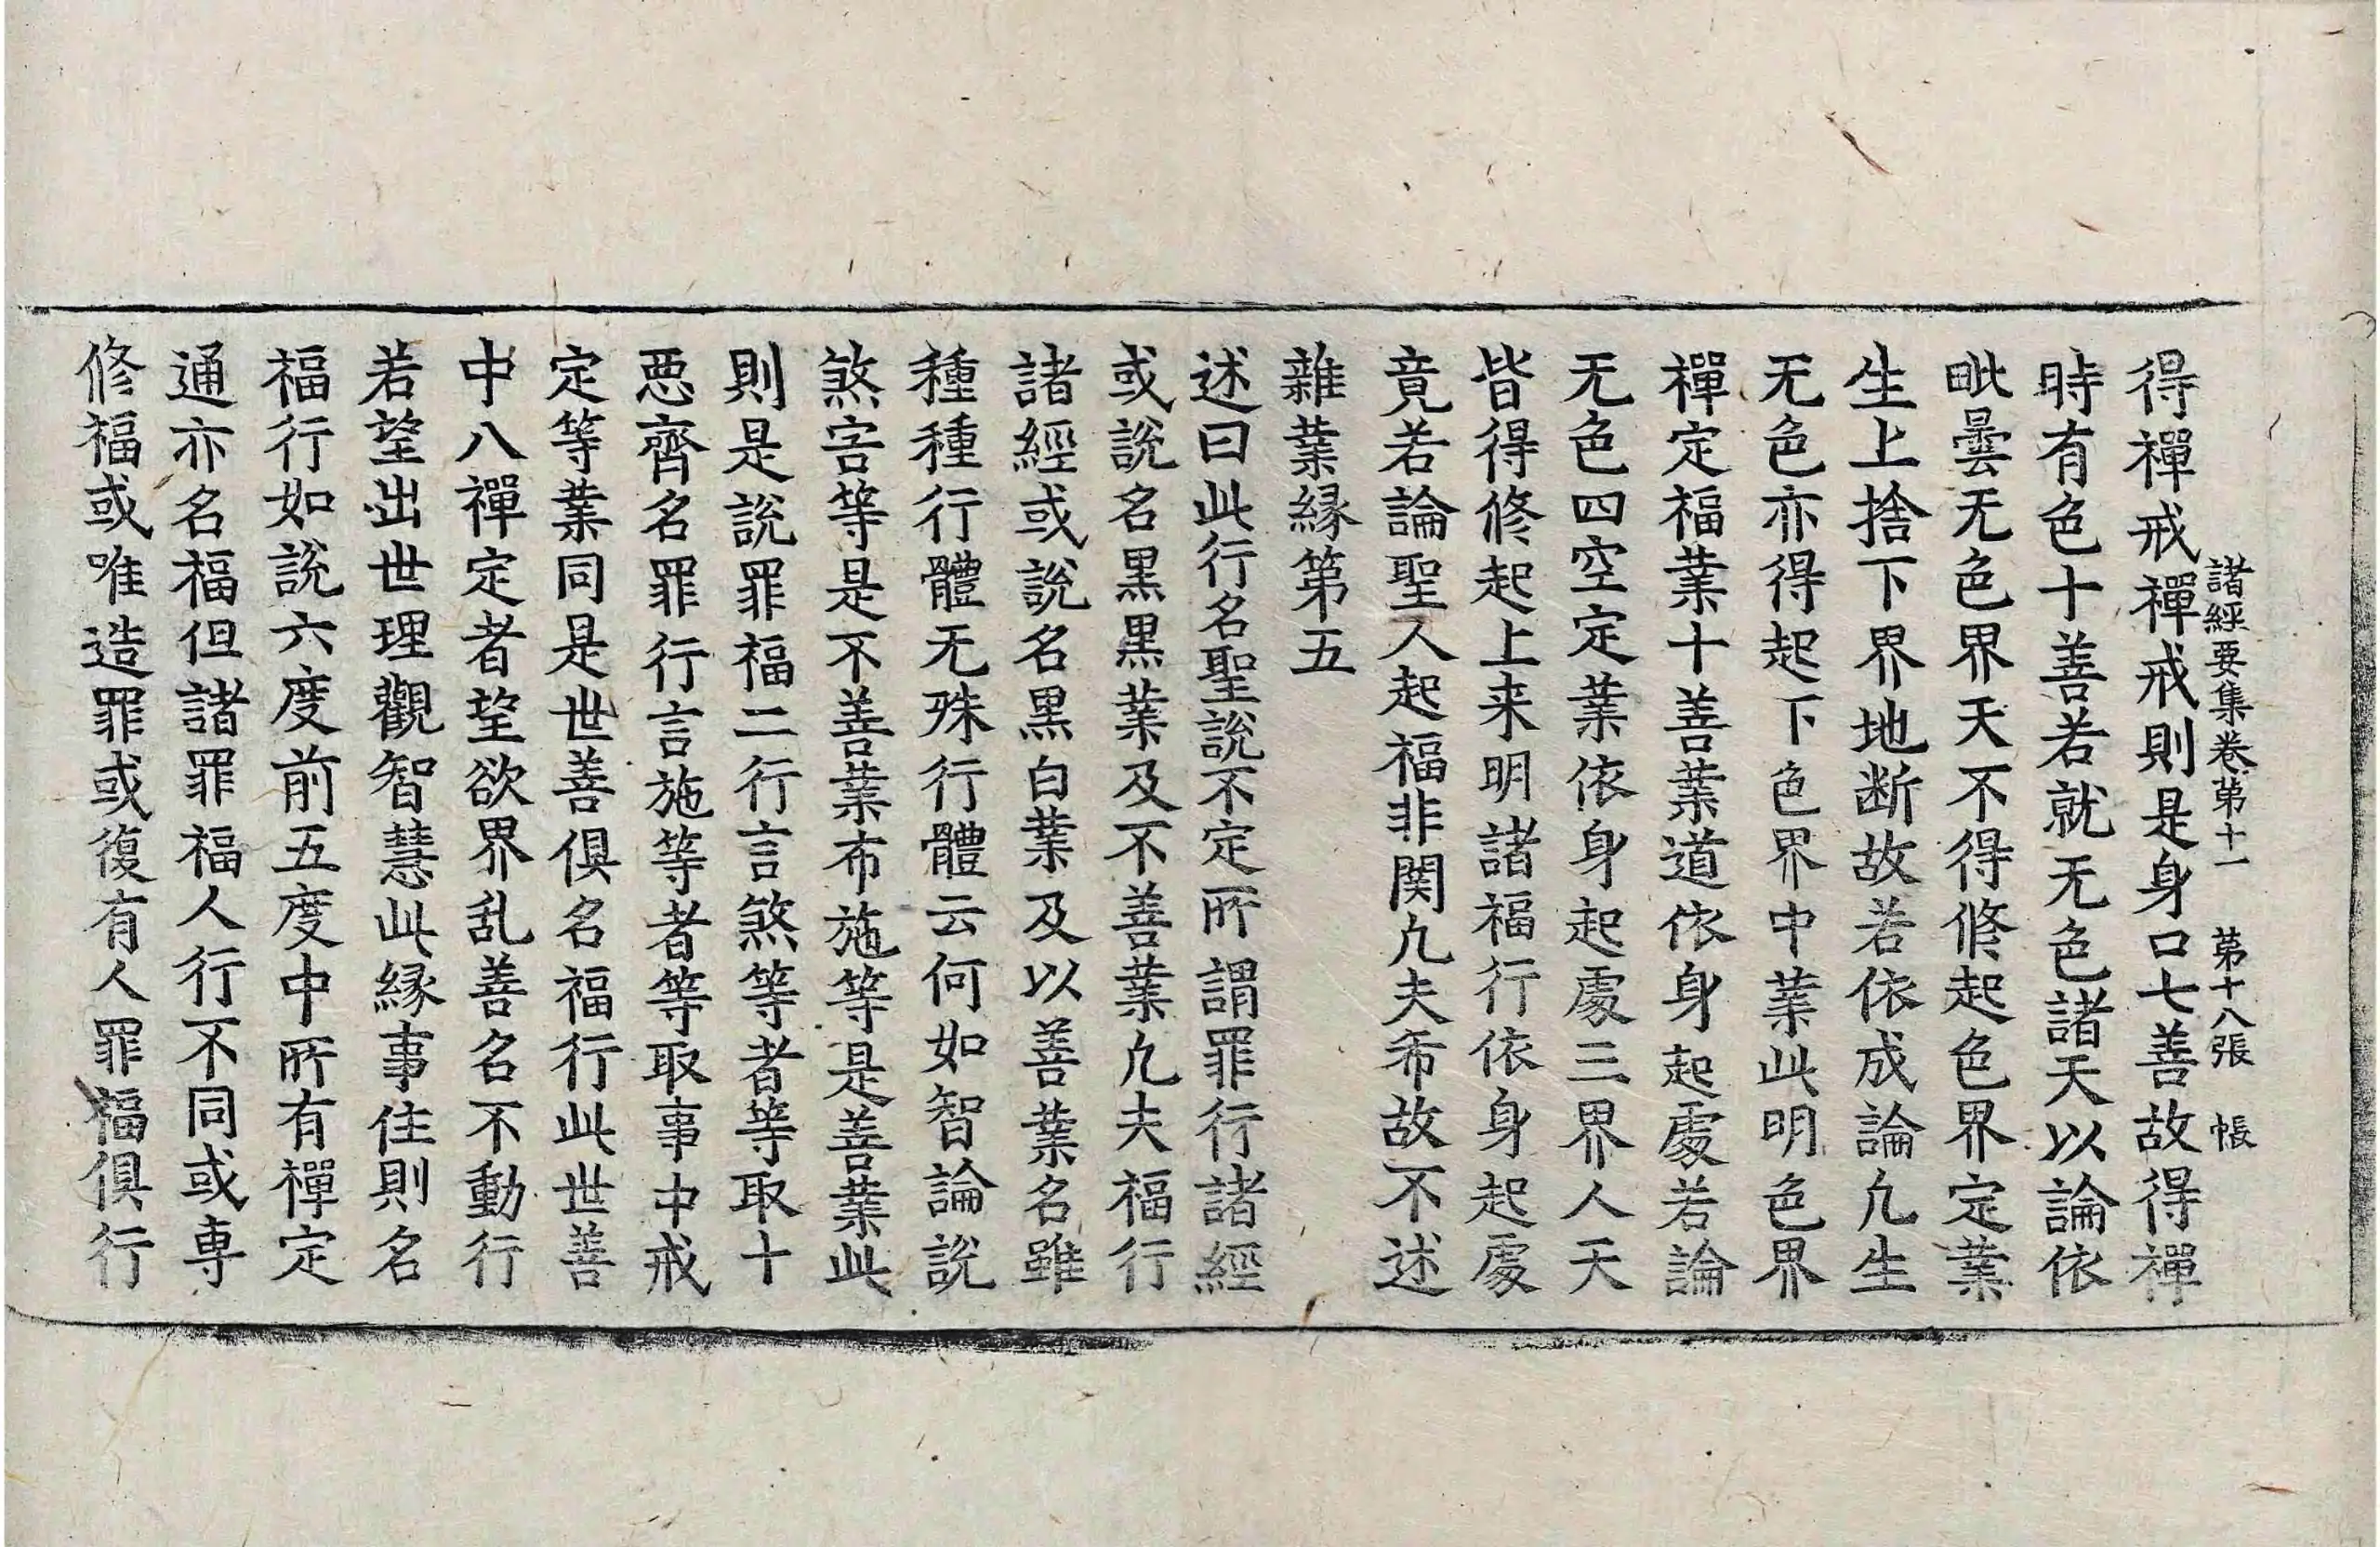 諸經要集卷第十一 第十八張 帳
得禪戒禪戒則是身口七善故得禪
時有色十善若就无色諸天以論依
毗曇无色界天不得修起色界定業
生上捨下界地断故若依成論凡生
无色亦得起下色界中業此明色界
禪定福業十善業道依身起處若論
无色四空定業依身起處三界人天
皆得修起上来明諸福行依身起處
竟若論聖人起福非関凡夫希故不述
雜業緣第五
述曰此行名聖說不定所謂罪行諸經
或說名黑黑業及不善業凡夫福行
諸經或說名黑白業及以善業名雖
種種行體无殊行體云何如智論說
煞害等是不善業布施等是善業此
則是說罪福二行言煞等者等取十
惡齊名罪行言施等者等取事中戒
定等業同是世善俱名福行此世善
中八禪定者望欲界乱善名不動行
若望出世理觀智慧此緣事住則名
福行如說六度前五度中所有禪定
通亦名福但諸罪福人行不同或専
修福或唯造罪或復有人罪福俱行